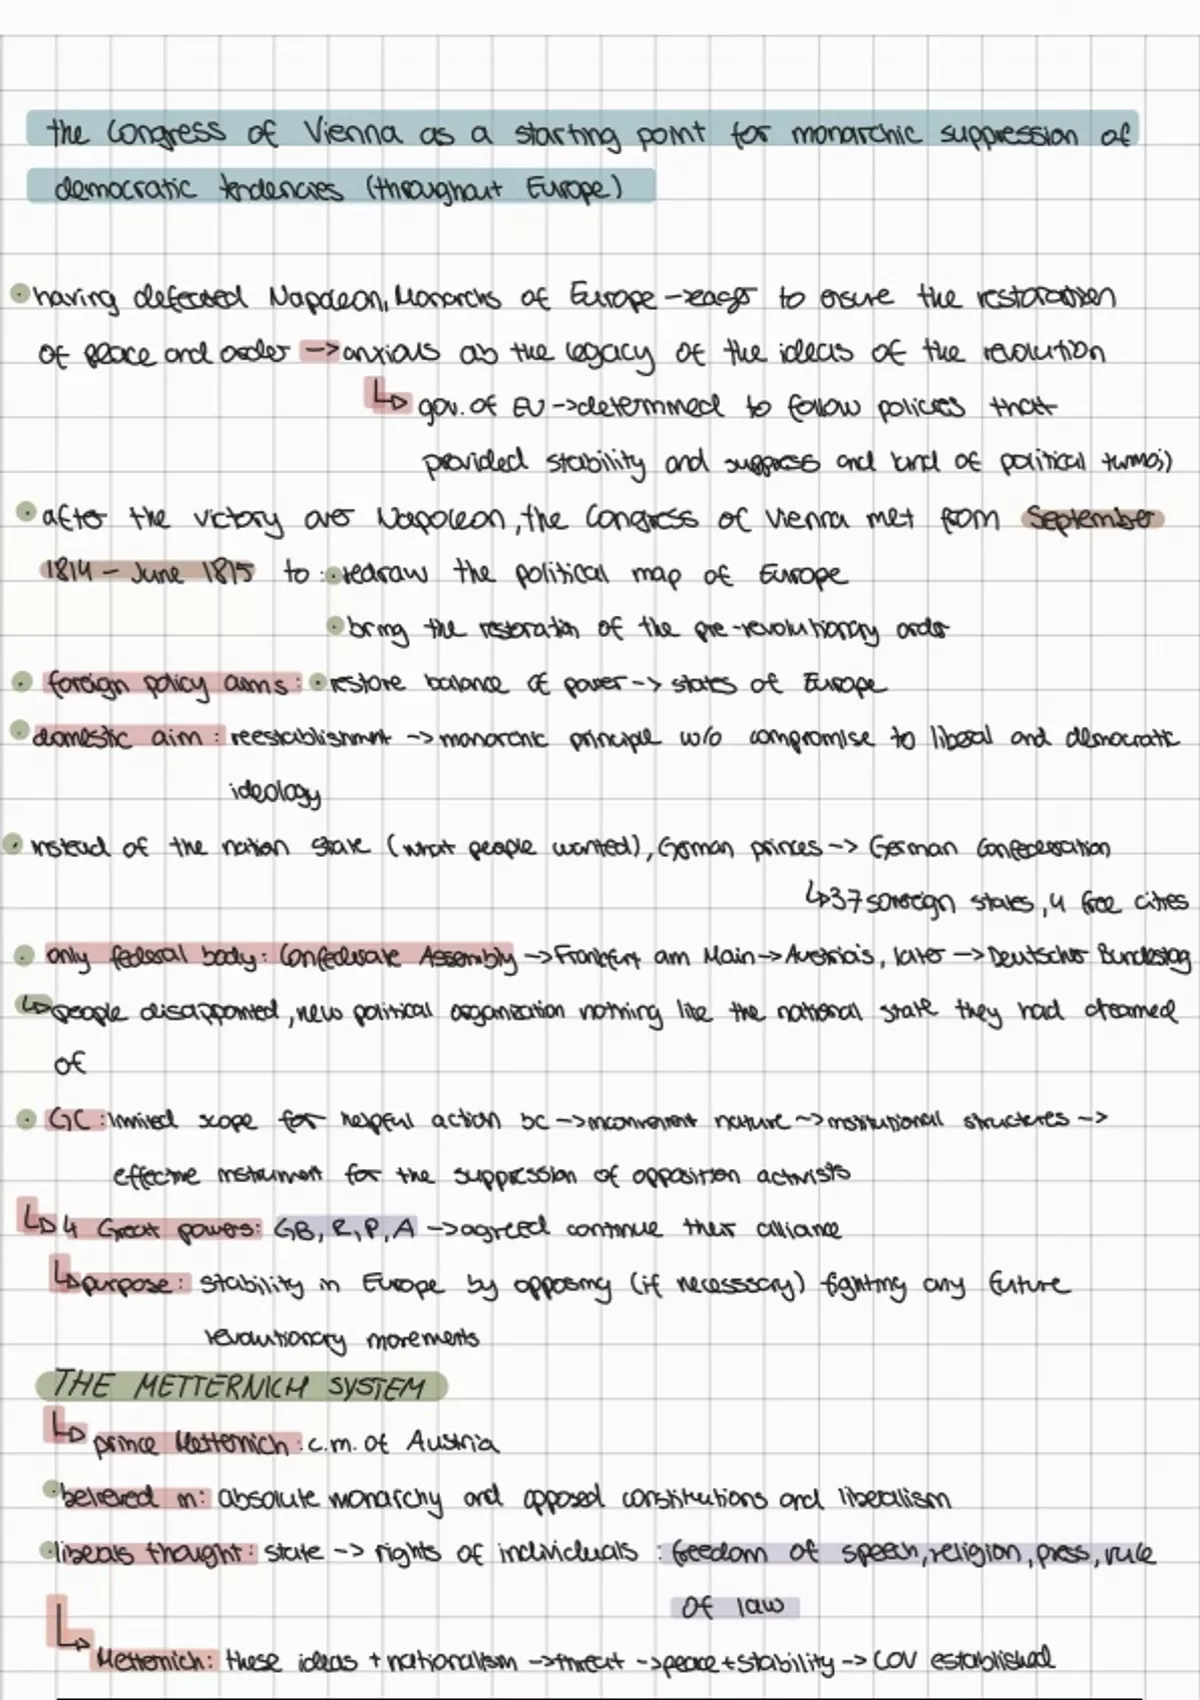 the Congress of Vienna as a starting point for monarchic suppression of
democratic tendencies (throughout Europe)
• having defeated Napoleon, Monarchs of Europe → eager to ensure the restoration
of peace and order → anxious ab the legacy of the ideas of the revolution
↳ gov. of EU → determined to follow policies that
provided stability and suppress and kind of political turmoil
• after the victory over Napoleon, the Congress of Vienna met from September
1814 – June 1815 to : • redraw the political map of Europe
• bring the restoration of the pre-revolutionary order
• foreign policy aims : • restore balance of power -> states of Europe
• domestic aim : reestablishment -> monarchic principle w/o compromise to liberal and democratic
ideology
• instead of the nation state (what people wanted), German princes -> German Confederation
↳ 37 sovereign states, 4 free cities
• only federal body: Confederate Assembly -> Frankfurt am Main -> Austria's, later -> Deutscher Bundestag
↳ people disappointed, new political organization nothing like the national state they had dreamed
of
• GC : limited scope for helpful action bc -> nature ~> institutional structures ->
effective instrument for the suppression of opposition activists
↳ 4 Great powers: GB, R, P, A -> agreed continue their alliance
↳ purpose : stability in Europe by opposing (if necesssary) fighting any future
revolutionary movements
THE METTERNICH SYSTEM
↳ prince Metternich : c.m. of Austria
• believed in: absolute monarchy and opposed constitutions and liberalism
• liberals thought : state -> rights of individuals : freedom of speech, religion, press, rule
of law
↳ Metternich: these ideas + nationalism -> threat -> peace + stability -> COV established